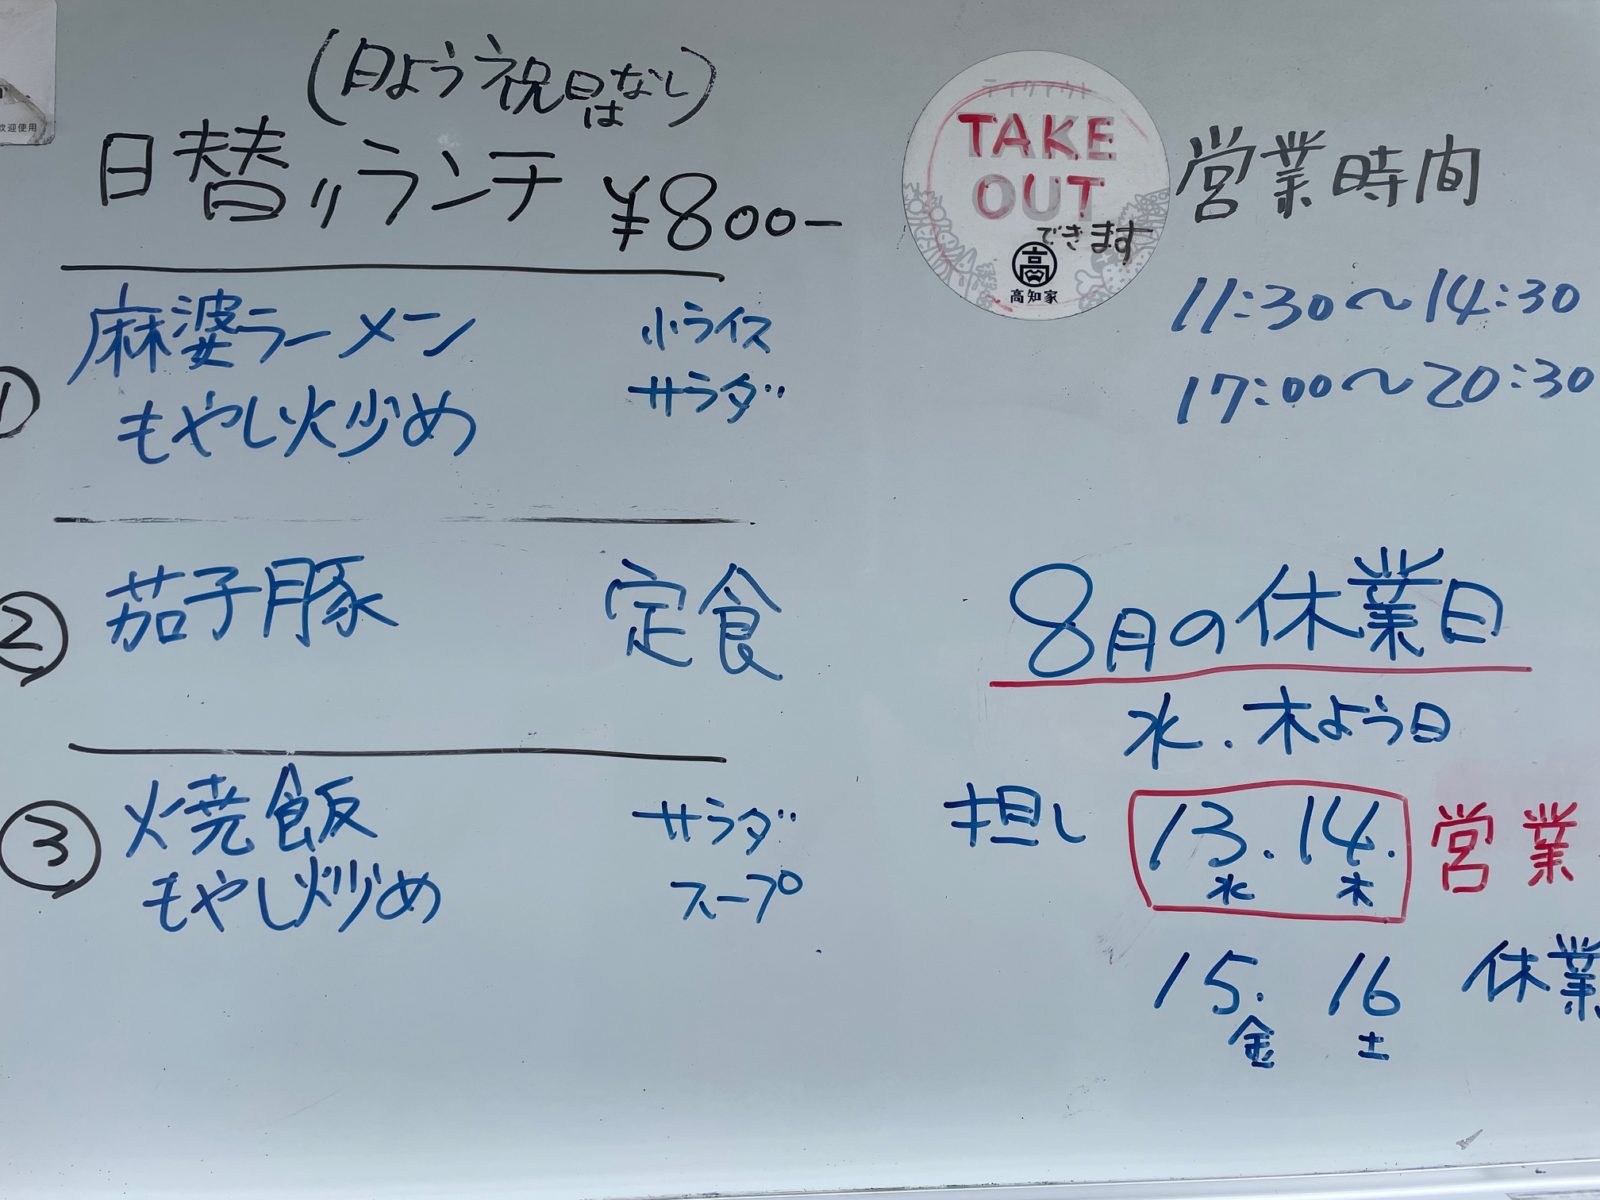 歓迎使用
(日よう祝日はなし)
日替りランチ ¥800-
① 麻婆ラーメン 小ライス
もやし炒め サラダ
② 茄子豚 定食
③ 焼飯 サラダ
もやし炒め スープ
テイクアウト
TAKE
OUT
できます
高
高知家
営業時間
11:30〜14:30
17:00〜20:30
8月の休業日
水.木よう日
担し 13.14. 営業
水 木
15. 16 休業
金 土